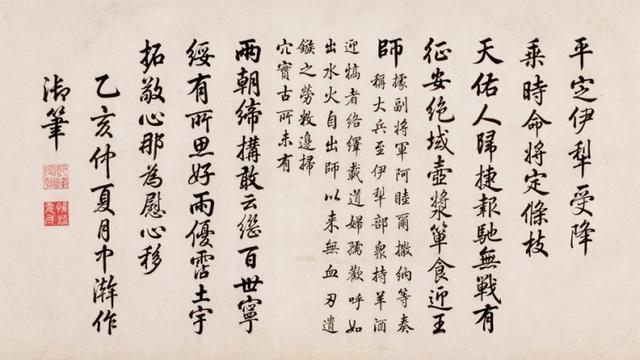 平定伊犁受降
乘時命將定條枝
天佑人歸捷報馳無戰有
征安絶域壺漿簞食迎王
師據副將軍阿睦爾撒納等奏
稱大兵至伊犁部衆持羊酒
迎犒者絡繹載道婦孺歡呼如
出水火自出師以來無血刃遺
鏃之勞敉邊掃
穴實古所未有
兩朝締構敢云繼百世寧
綏有所思好雨優霑土宇
拓敬心那為慰心移
乙亥仲夏月中澣作
御筆